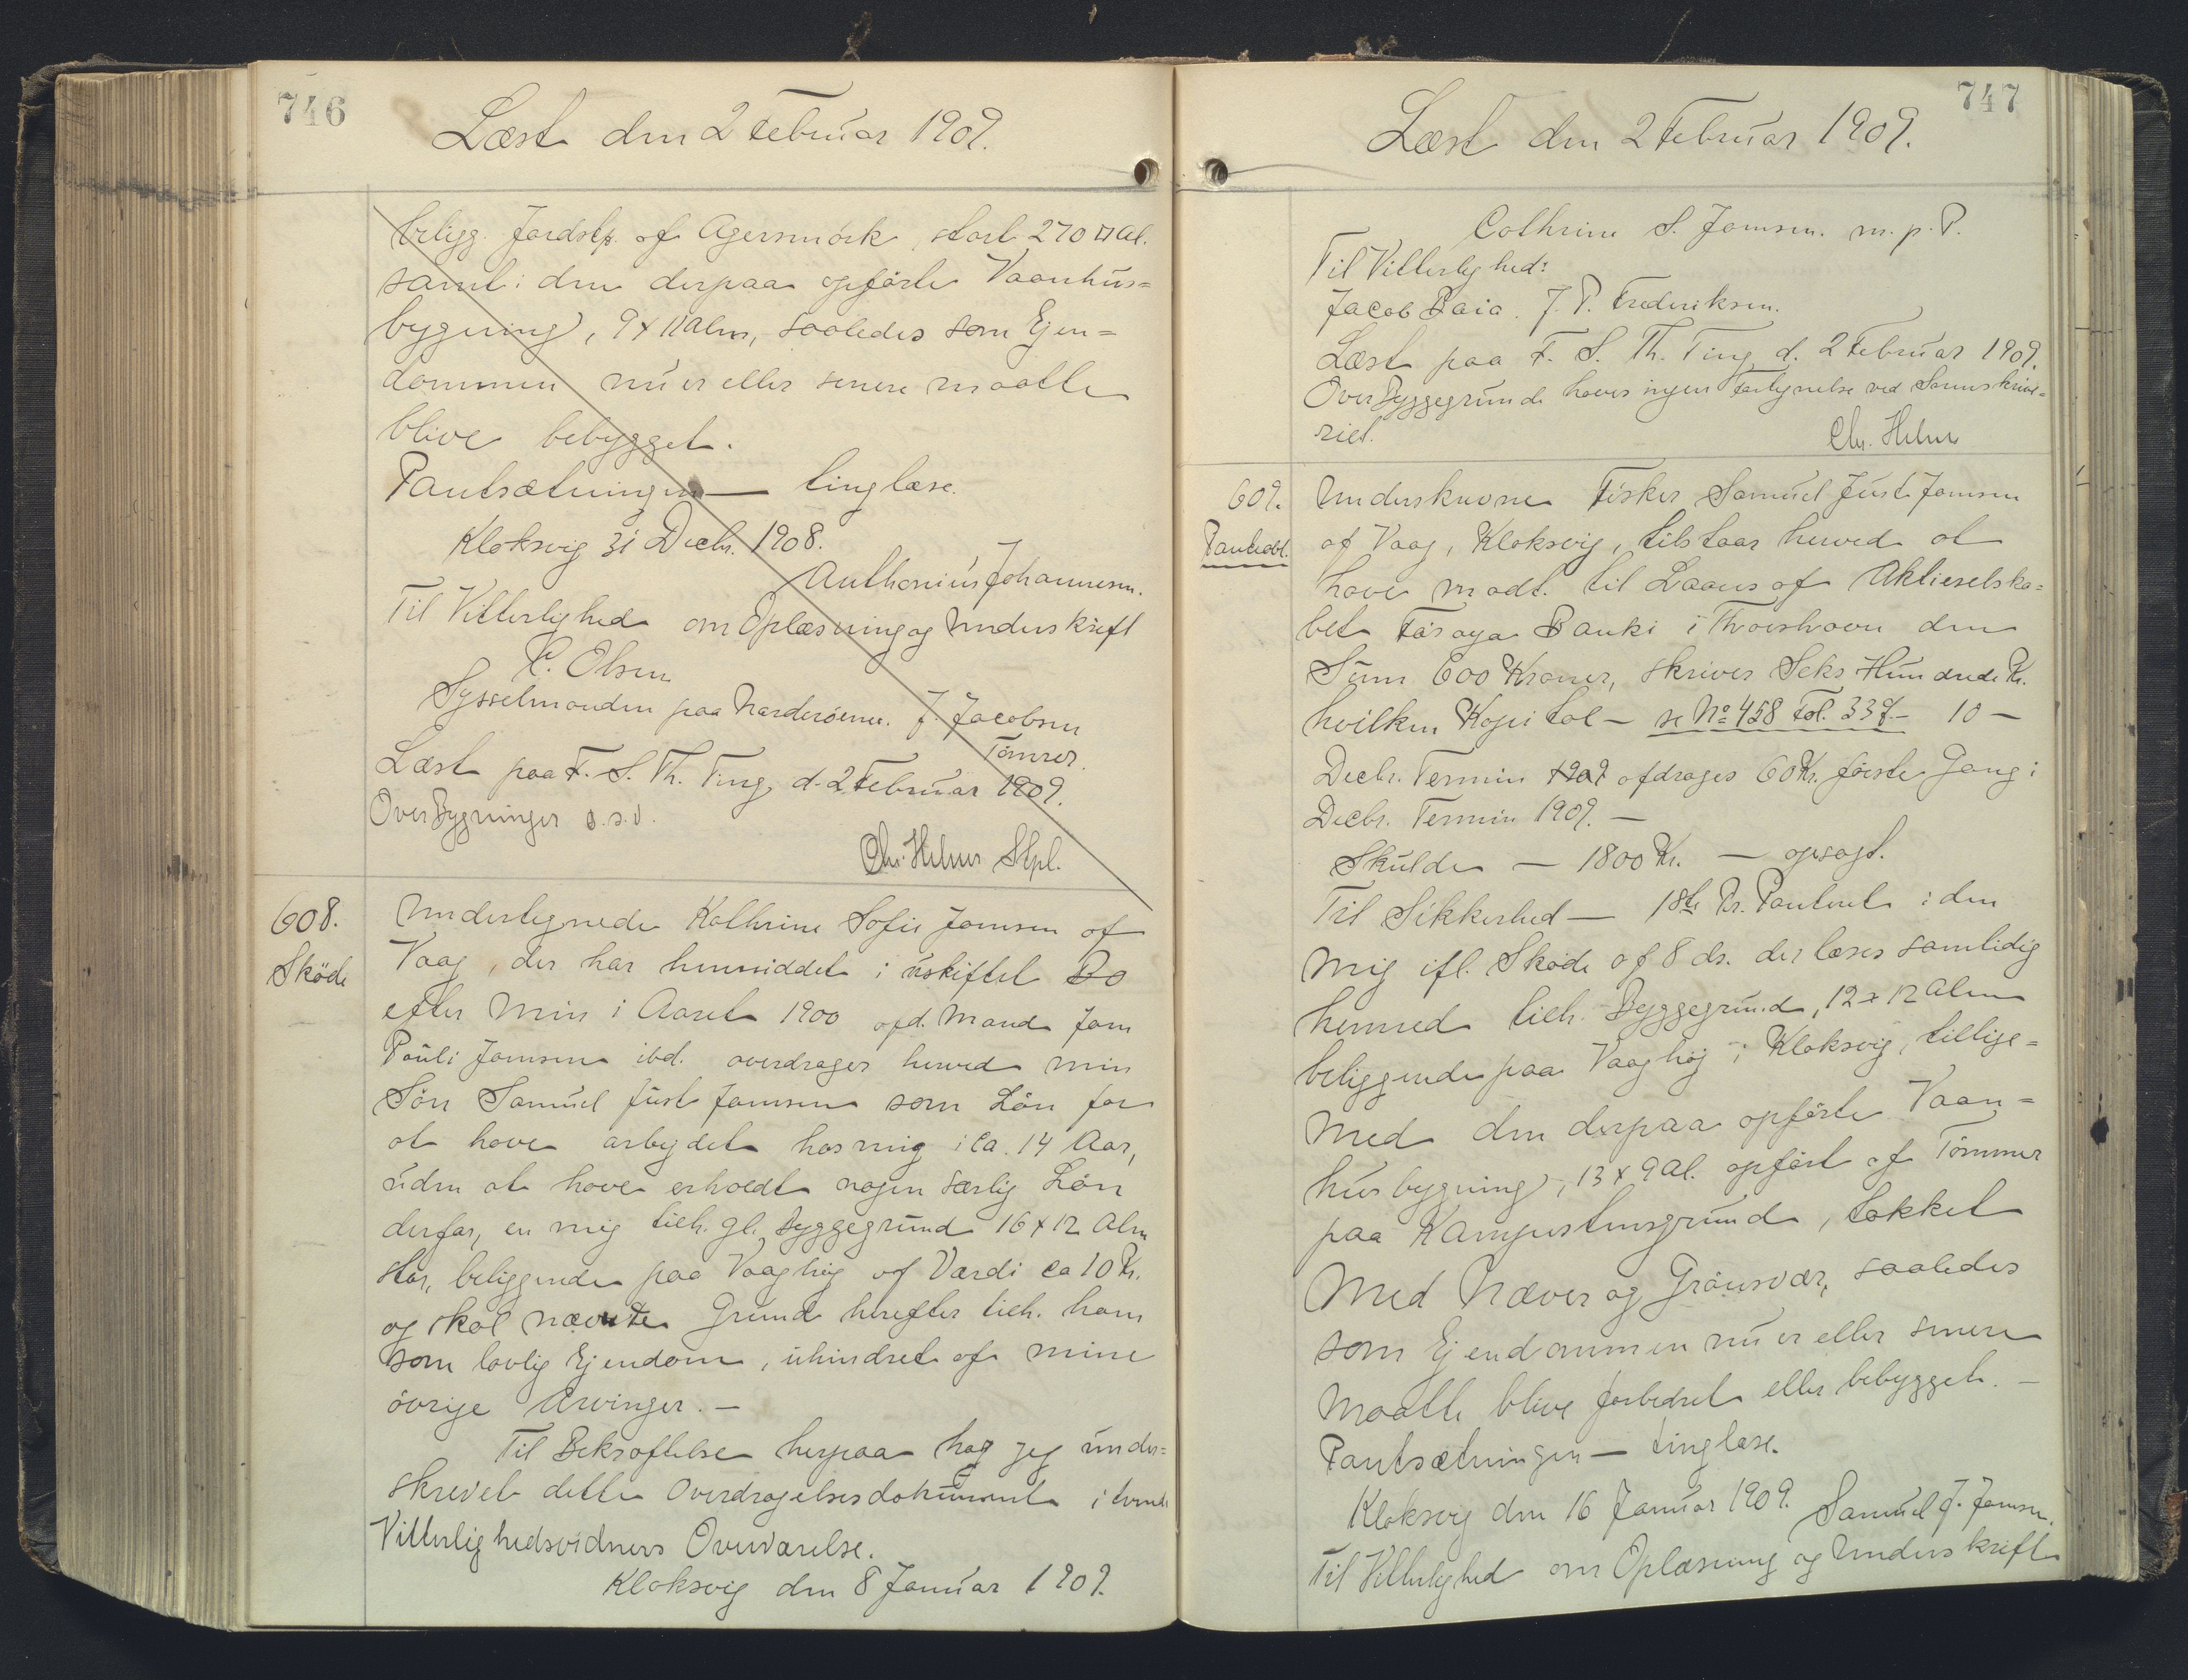 746
Læst den 2 Februar 1909.
beligg. Jordstk. af Agersmörk, stort 270 □ Al.
samt i den derpaa opførte Vaanhus=
bygning, 9 x 11 Alen, saaledes som Ejen=
dommen nu er eller senere maatte
blive bebygget.
Pantsætningen — tinglæse.
Kloksvig 31 Decbr. 1908.
Anthonius Johannesen.
Til Vitterlighed om Oplæsning og Underskrift
Olsen
Sysselmanden paa Norderöerne. J. Jacobsen
Tömrer.
Læst paa F. S. Th. Ting, d. 2 Februar 1909.
Over Bygninger o.s.v.
Chr. Helms Stpl.
608.
Sköde
Undertegnede Kathrine Sofie Jomsen af
Vaag, der har hensiddet i uskiftet Bo
efter min i Aaret 1900 afd. Mand Jom
Pauli Jomsen ibd. overdrager herved min
Sön Samuel Just Jomsen som Lön for
at have arbejdet hos mig i ca. 14 Aar,
uden at have erholdt nogen særlig Lön
derfor, en mig tilh. gl. Byggegrund 16 x 12 Alen
stor, beliggende paa Vaaghöj af Værdi ca 10 Kr.
og skal nævnte Grund herefter tilh. ham
som lovlig Ejendom, uhindret af mine
övrige Arvinger. —
Til Bekræftelse herpaa har jeg under=
skrevet dette Overdragelsesdokument i tvende
Vitterlighedsvidners Overværelse.
Kloksvig den 8 Januar 1909.
747
Læst den 2 Februar 1909.
Cathrine S. Jomsen. m. p. P.
Til Vitterlighed:
Jacob Baia. J. P. Frederiksen.
Læst paa F. S. Th. Ting d. 2 Februar 1909.
Over Byggegrunde haves ingen Fortegnelse ved Sorenskrive=
riet.
Chr. Helms
609.
Panteobl.
Underskrevne Fisker Samuel Just Jomsen
af Vaag, Kloksvig, tilstaar herved at
have modt. til Laans af Aktieselska=
bet Föroya Banki i Thorshavn den
Sum 600 Kroner, skriver Seks Hundrede Kr.
hvilken Kapital — se No 458 Fol. 337 — 10 —
Decbr. Termin 1909 afdrages 60 Kr. første Gang i
Decbr. Termin 1909. —
Skulde — 1800 Kr. — opsagt.
Til Sikkerhed — 1ste Pr. Panteret i den
mig ifl. Sköde af 8 ds. der læses samtidig
hermed tilh. Byggegrund, 12 x 12 Alen
beliggende paa Vaaghöj i Kloksvig, tillige=
med den derpaa opførte Vaan=
husbygning, 13 x 9 Al. opfört af Tömmer
paa Kampestensgrund, tækket
med Næver og Grönsvær, saaledes
som Ejendommen nu er eller senere
maatte blive forbedret eller bebygget. —
Pantsætningen — tinglæse.
Kloksvig den 16 Januar 1909. Samuel J. Jomsen.
Til Vitterlighed om Oplæsning og Underskrift